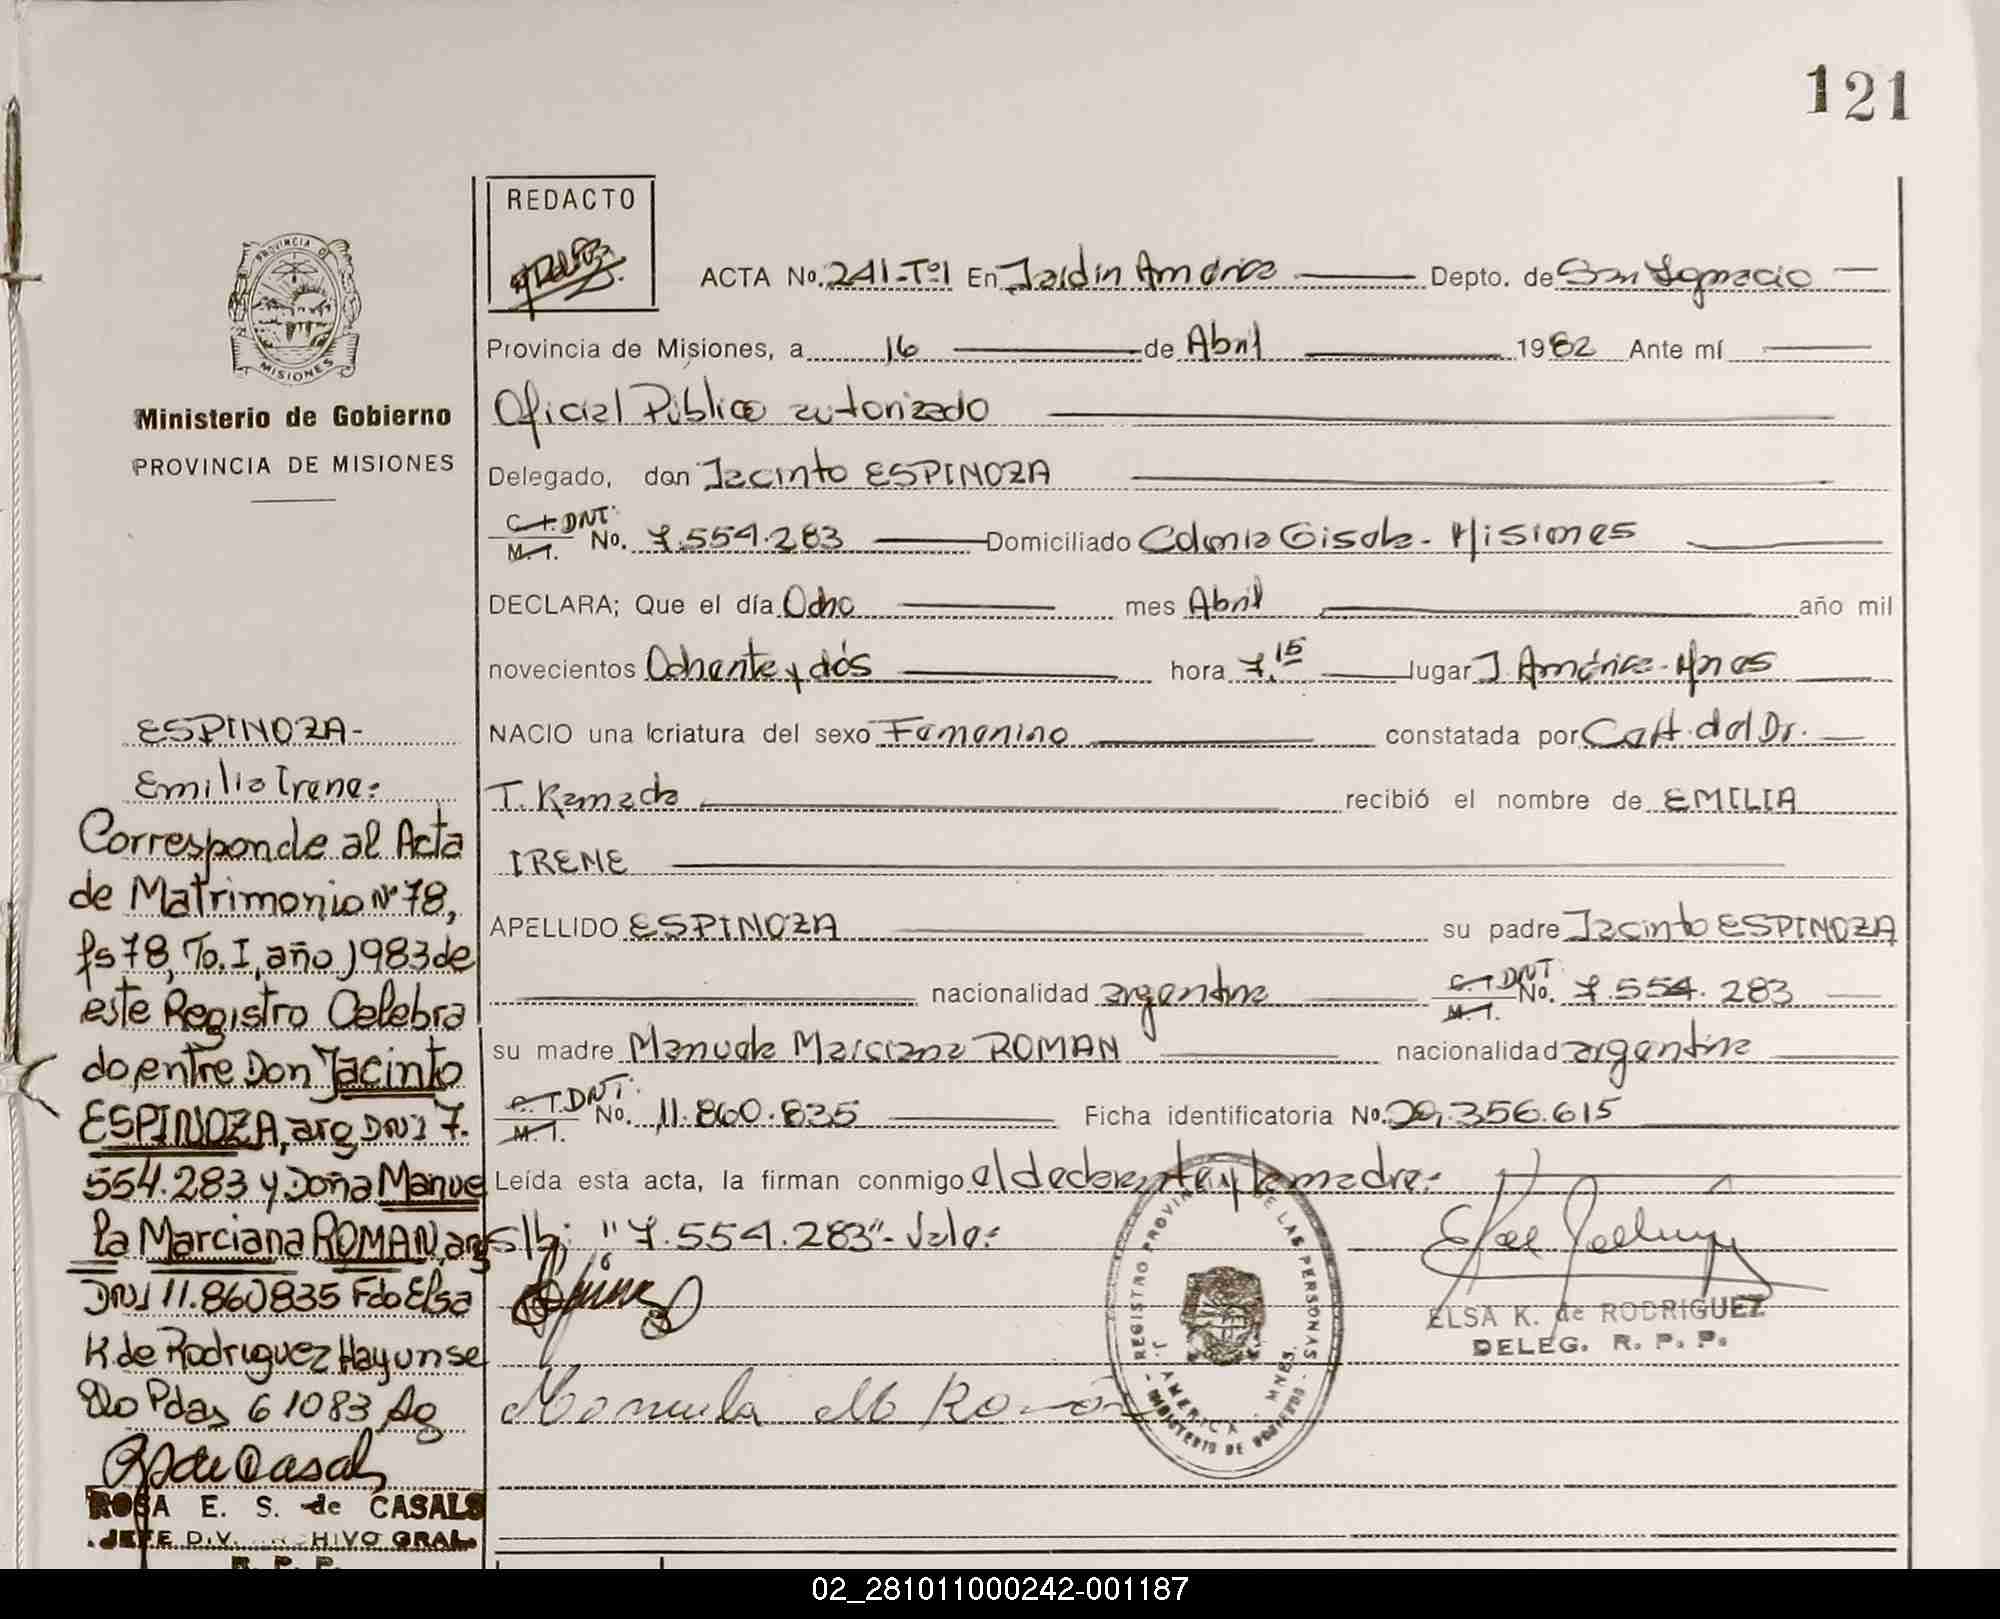 121
REDACTO
ACTA No. 241-Tº1 En Jardín América Depto. de San Ignacio
Provincia de Misiones, a 16 de Abril 1982 Ante mí
Oficial Público autorizado
Delegado, don Jacinto ESPINOZA
C.I. DNI: M.I. No. 7.554.283 Domiciliado Colonia Gisela - Misiones
DECLARA; Que el día Ocho mes Abril año mil
novecientos Ochenta y dós hora 7,15 lugar J. América - Mnes
NACIO una criatura del sexo Femenino constatada por Cert. del Dr.
T. Kamada recibió el nombre de EMILIA
IRENE
APELLIDO ESPINOZA su padre Jacinto ESPINOZA
nacionalidad argentina C.I. DNI M.I. No. 7.554.283
su madre Manuela Marciana ROMAN nacionalidad argentina
C.I. DNI: M.I. No. 11.860.835 Ficha identificatoria No. 29.356.615
Leída esta acta, la firman conmigo el declarante y la madre.-
S/b; "7.554.283"- Vale.-
Manuela M Román
ELSA K. de RODRIGUEZ
DELEG. R. P. P.
REGISTRO PROVIN DE LAS PERSONAS
J. AMERICA - MNES.
MINISTERIO DE GOBIERNO
PROVINCIA D
MISIONES
Ministerio de Gobierno
PROVINCIA DE MISIONES
ESPINOZA-
Emilia Irene.-
Corresponde al Acta
de Matrimonio Nº 78,
fs 78, To. I, año 1983 de
este Registro Celebra
do, entre Don Jacinto
ESPINOZA, arg DNI 7.
554.283 y Doña Manue
la Marciana ROMAN, arg
DNI 11.860835 Fdo Elsa
K de Rodriguez Hay un se
llo Pdas 6 10 83 Ag
R de Casals
ROSA E. S. de CASALS
JEFE DIV. HIVO GRAL.
R. P. P.
02_281011000242-001187